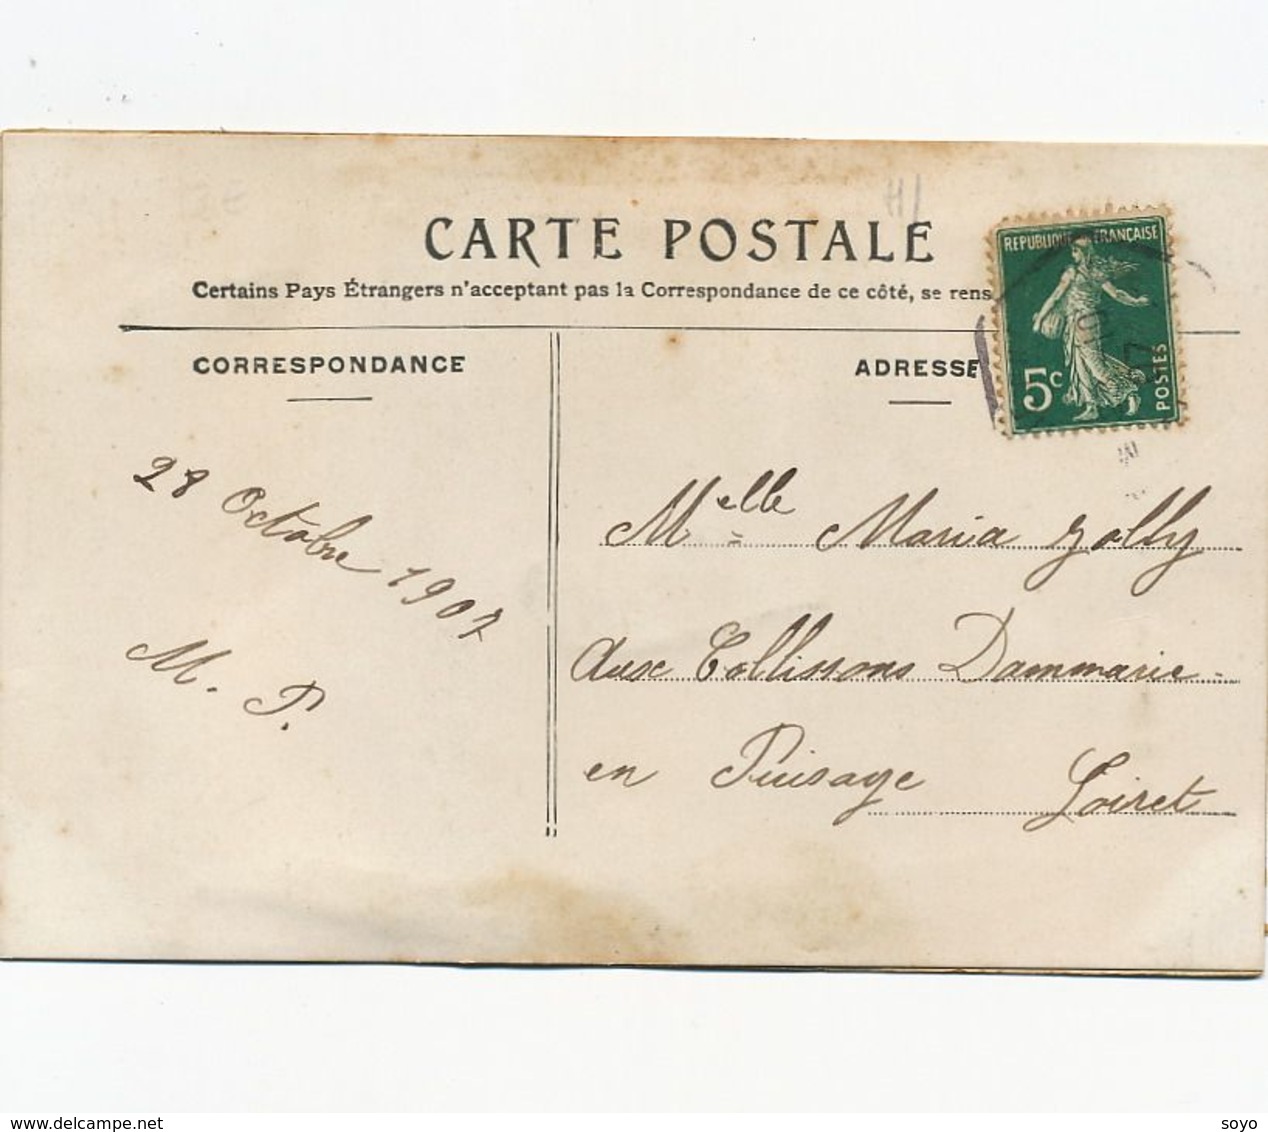 CARTE POSTALE
Certains Pays Étrangers n'acceptant pas la Correspondance de ce côté, se rens
CORRESPONDANCE
ADRESSE
REPUBLIQUE FRANÇAISE
5c
POSTES
28 Octobre 1907
M. P.
Melle Maria Jolly
aux Collissons Dammarie
en Puisaye Loiret
www.delcampe.net
soyo